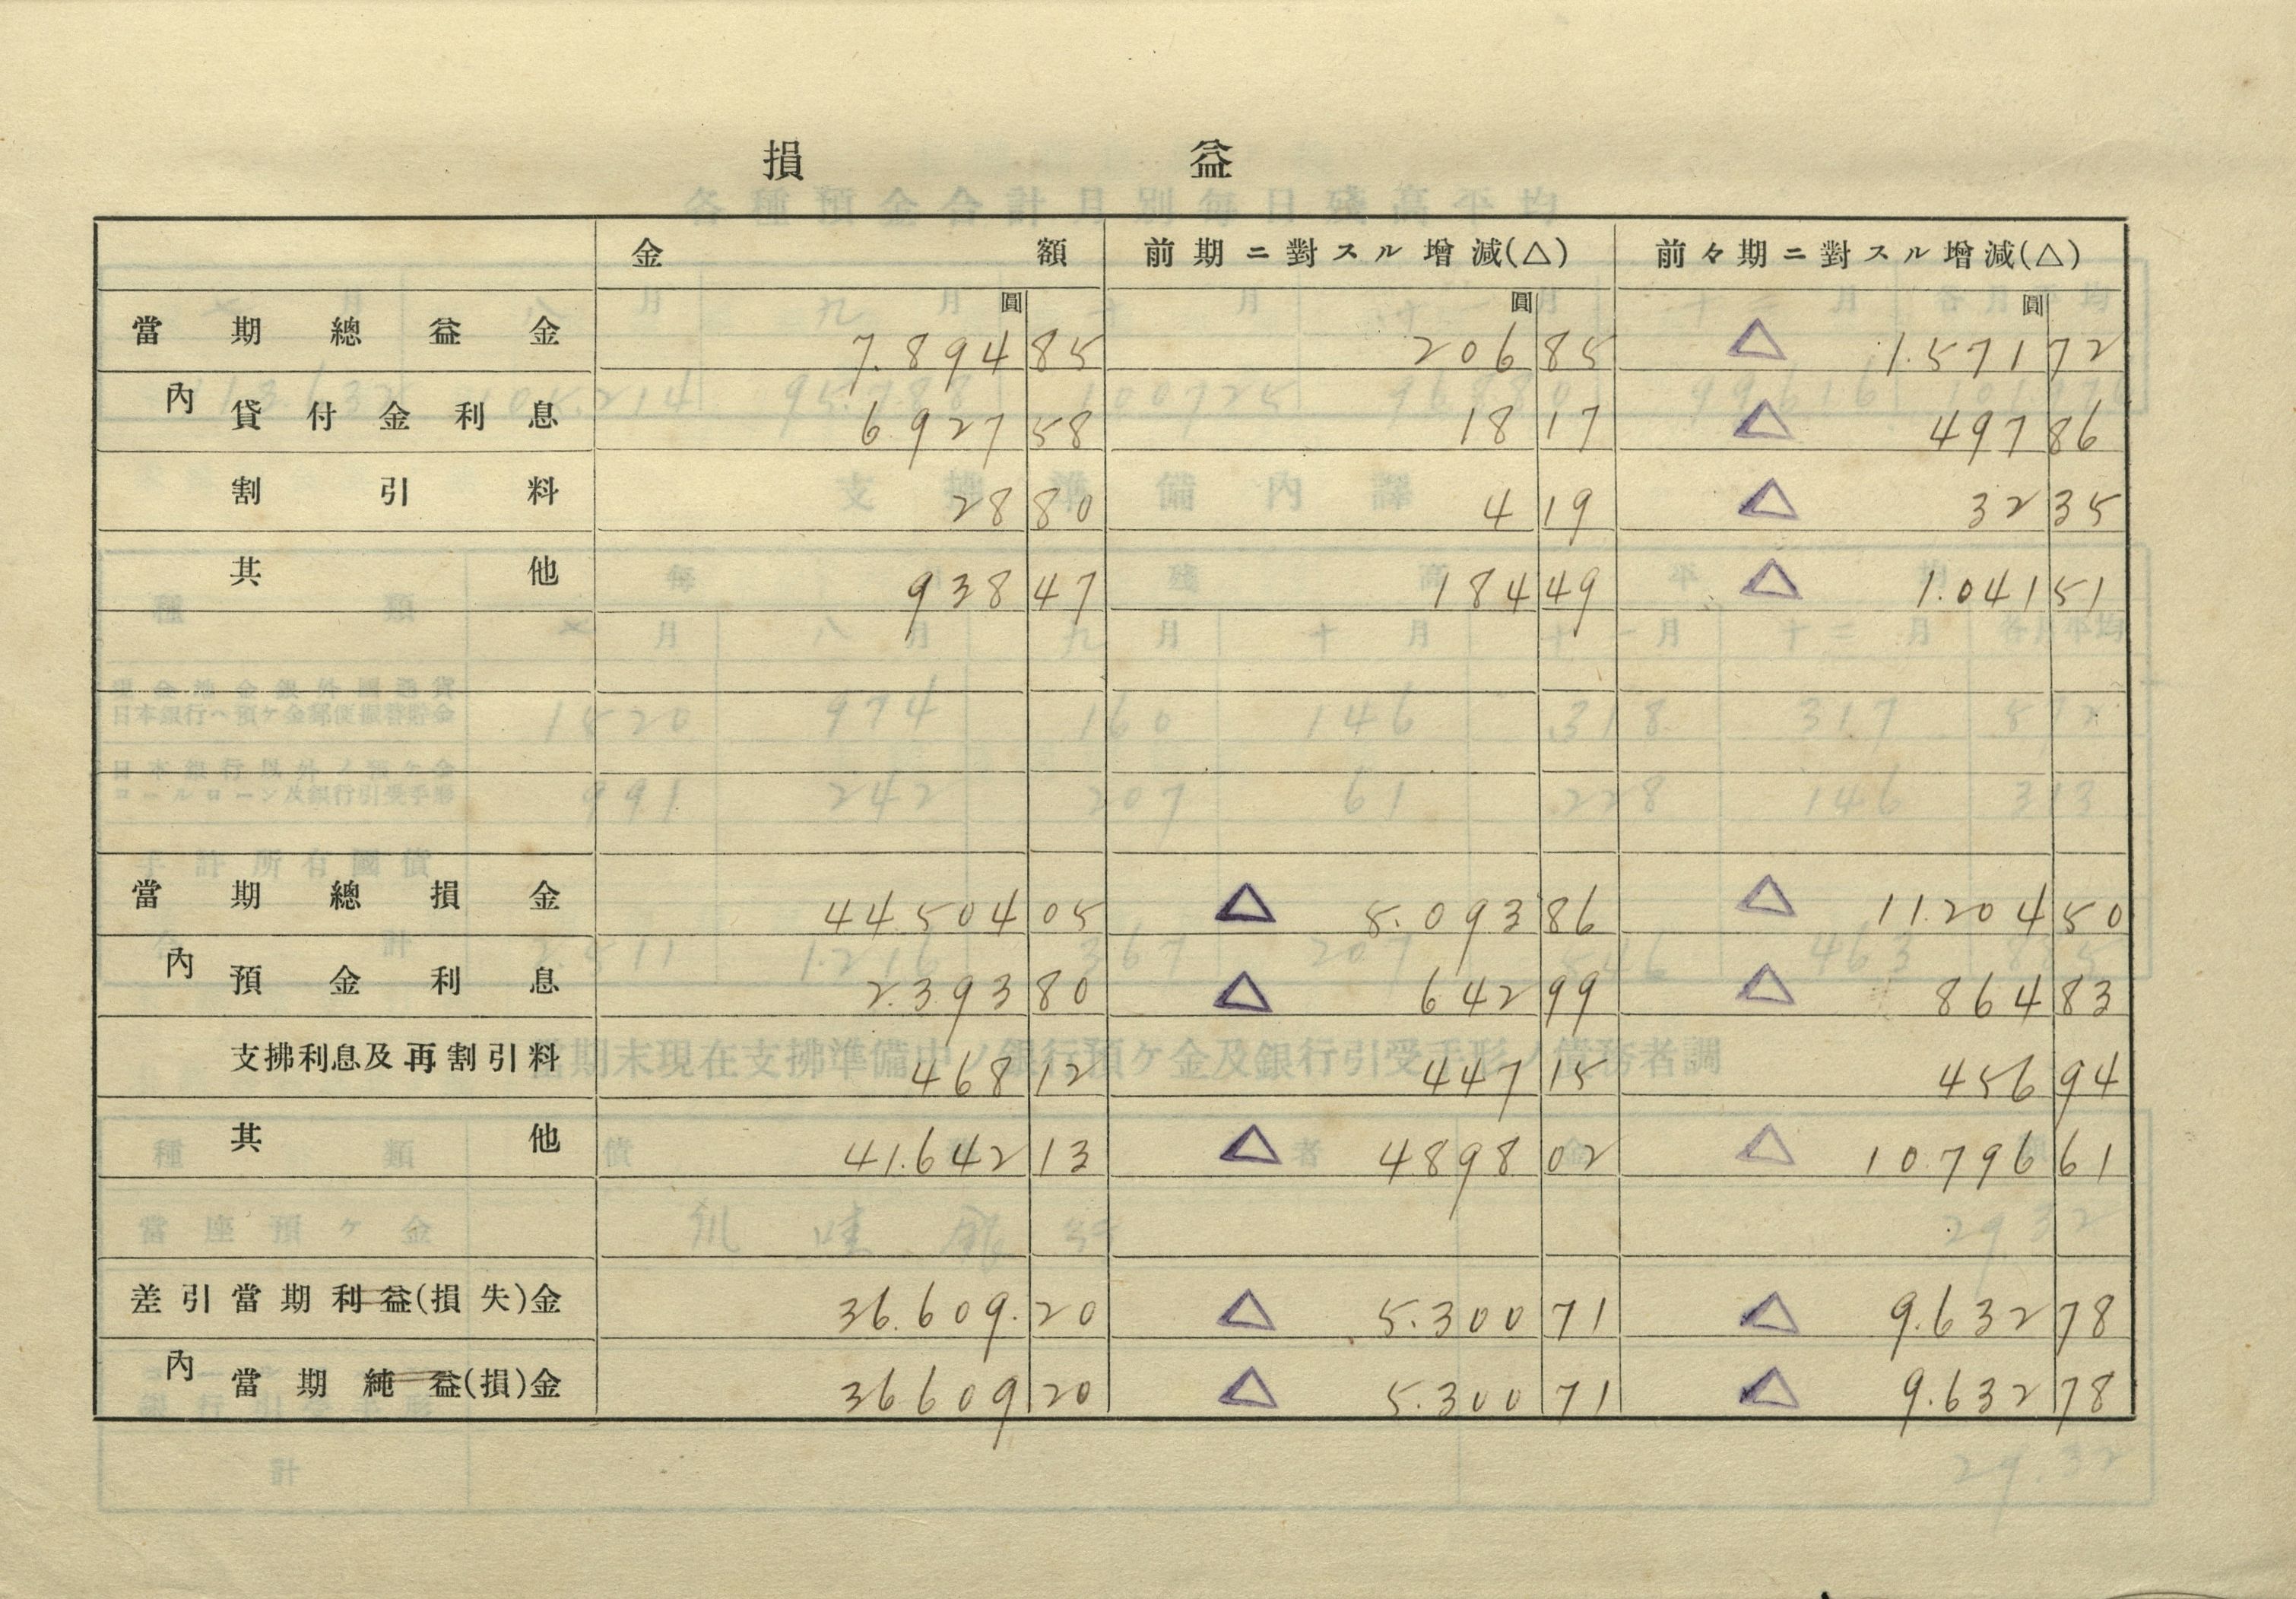 損益
金額 前期ニ對スル增減(△) 前々期ニ對スル增減(△)
圓 圓 圓
當期總益金 7.894 85 206 85 △ 1.571 72
內 貸付金利息 6 927 58 18 17 △ 497 86
割引料 28 80 4 19 △ 32 35
其他 938 47 184 49 △ 1.041 51
當期總損金 44.504 05 △ 5.093 86 △ 11.204 50
內 預金利息 2.393 80 △ 642 99 △ 864 83
支拂利息及再割引料 468 12 447 15 456 94
其他 41.642 13 △ 4898 02 △ 10.796 61
差引當期利益(損失)金 36.609.20 △ 5.300 71 △ 9.632 78
內 當期純益(損)金 36609 20 △ 5.300 71 △ 9.632 78